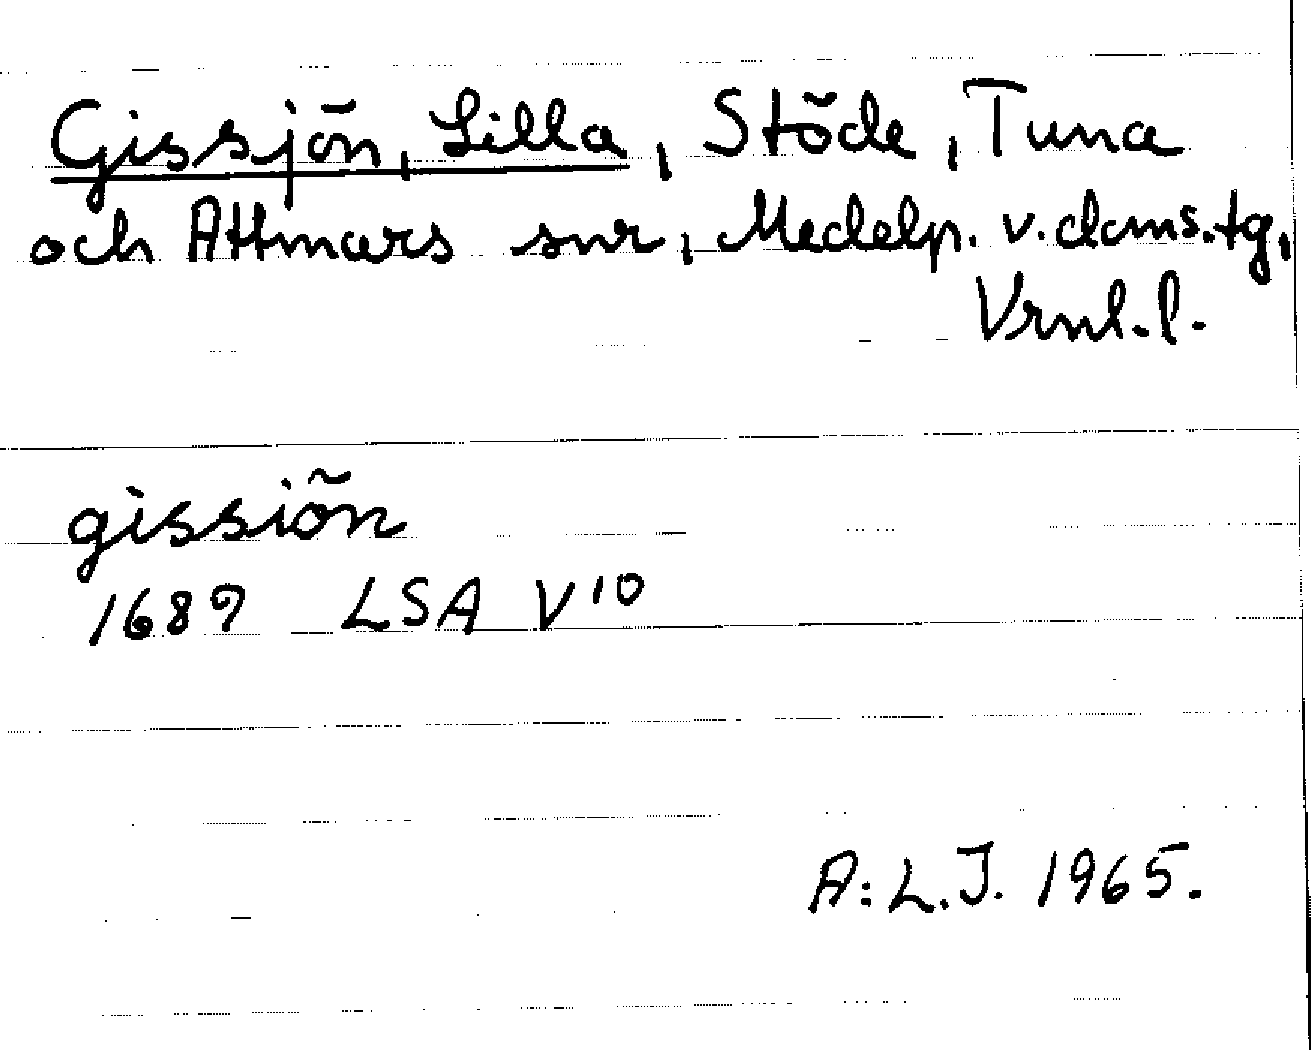 Gissjön, Lilla, Stöde, Tuna
och Attmars snr, Medelp. v. doms.tg,
Vrnl. l.
gissiön
1689 LSA V 10
A:L.J. 1965.